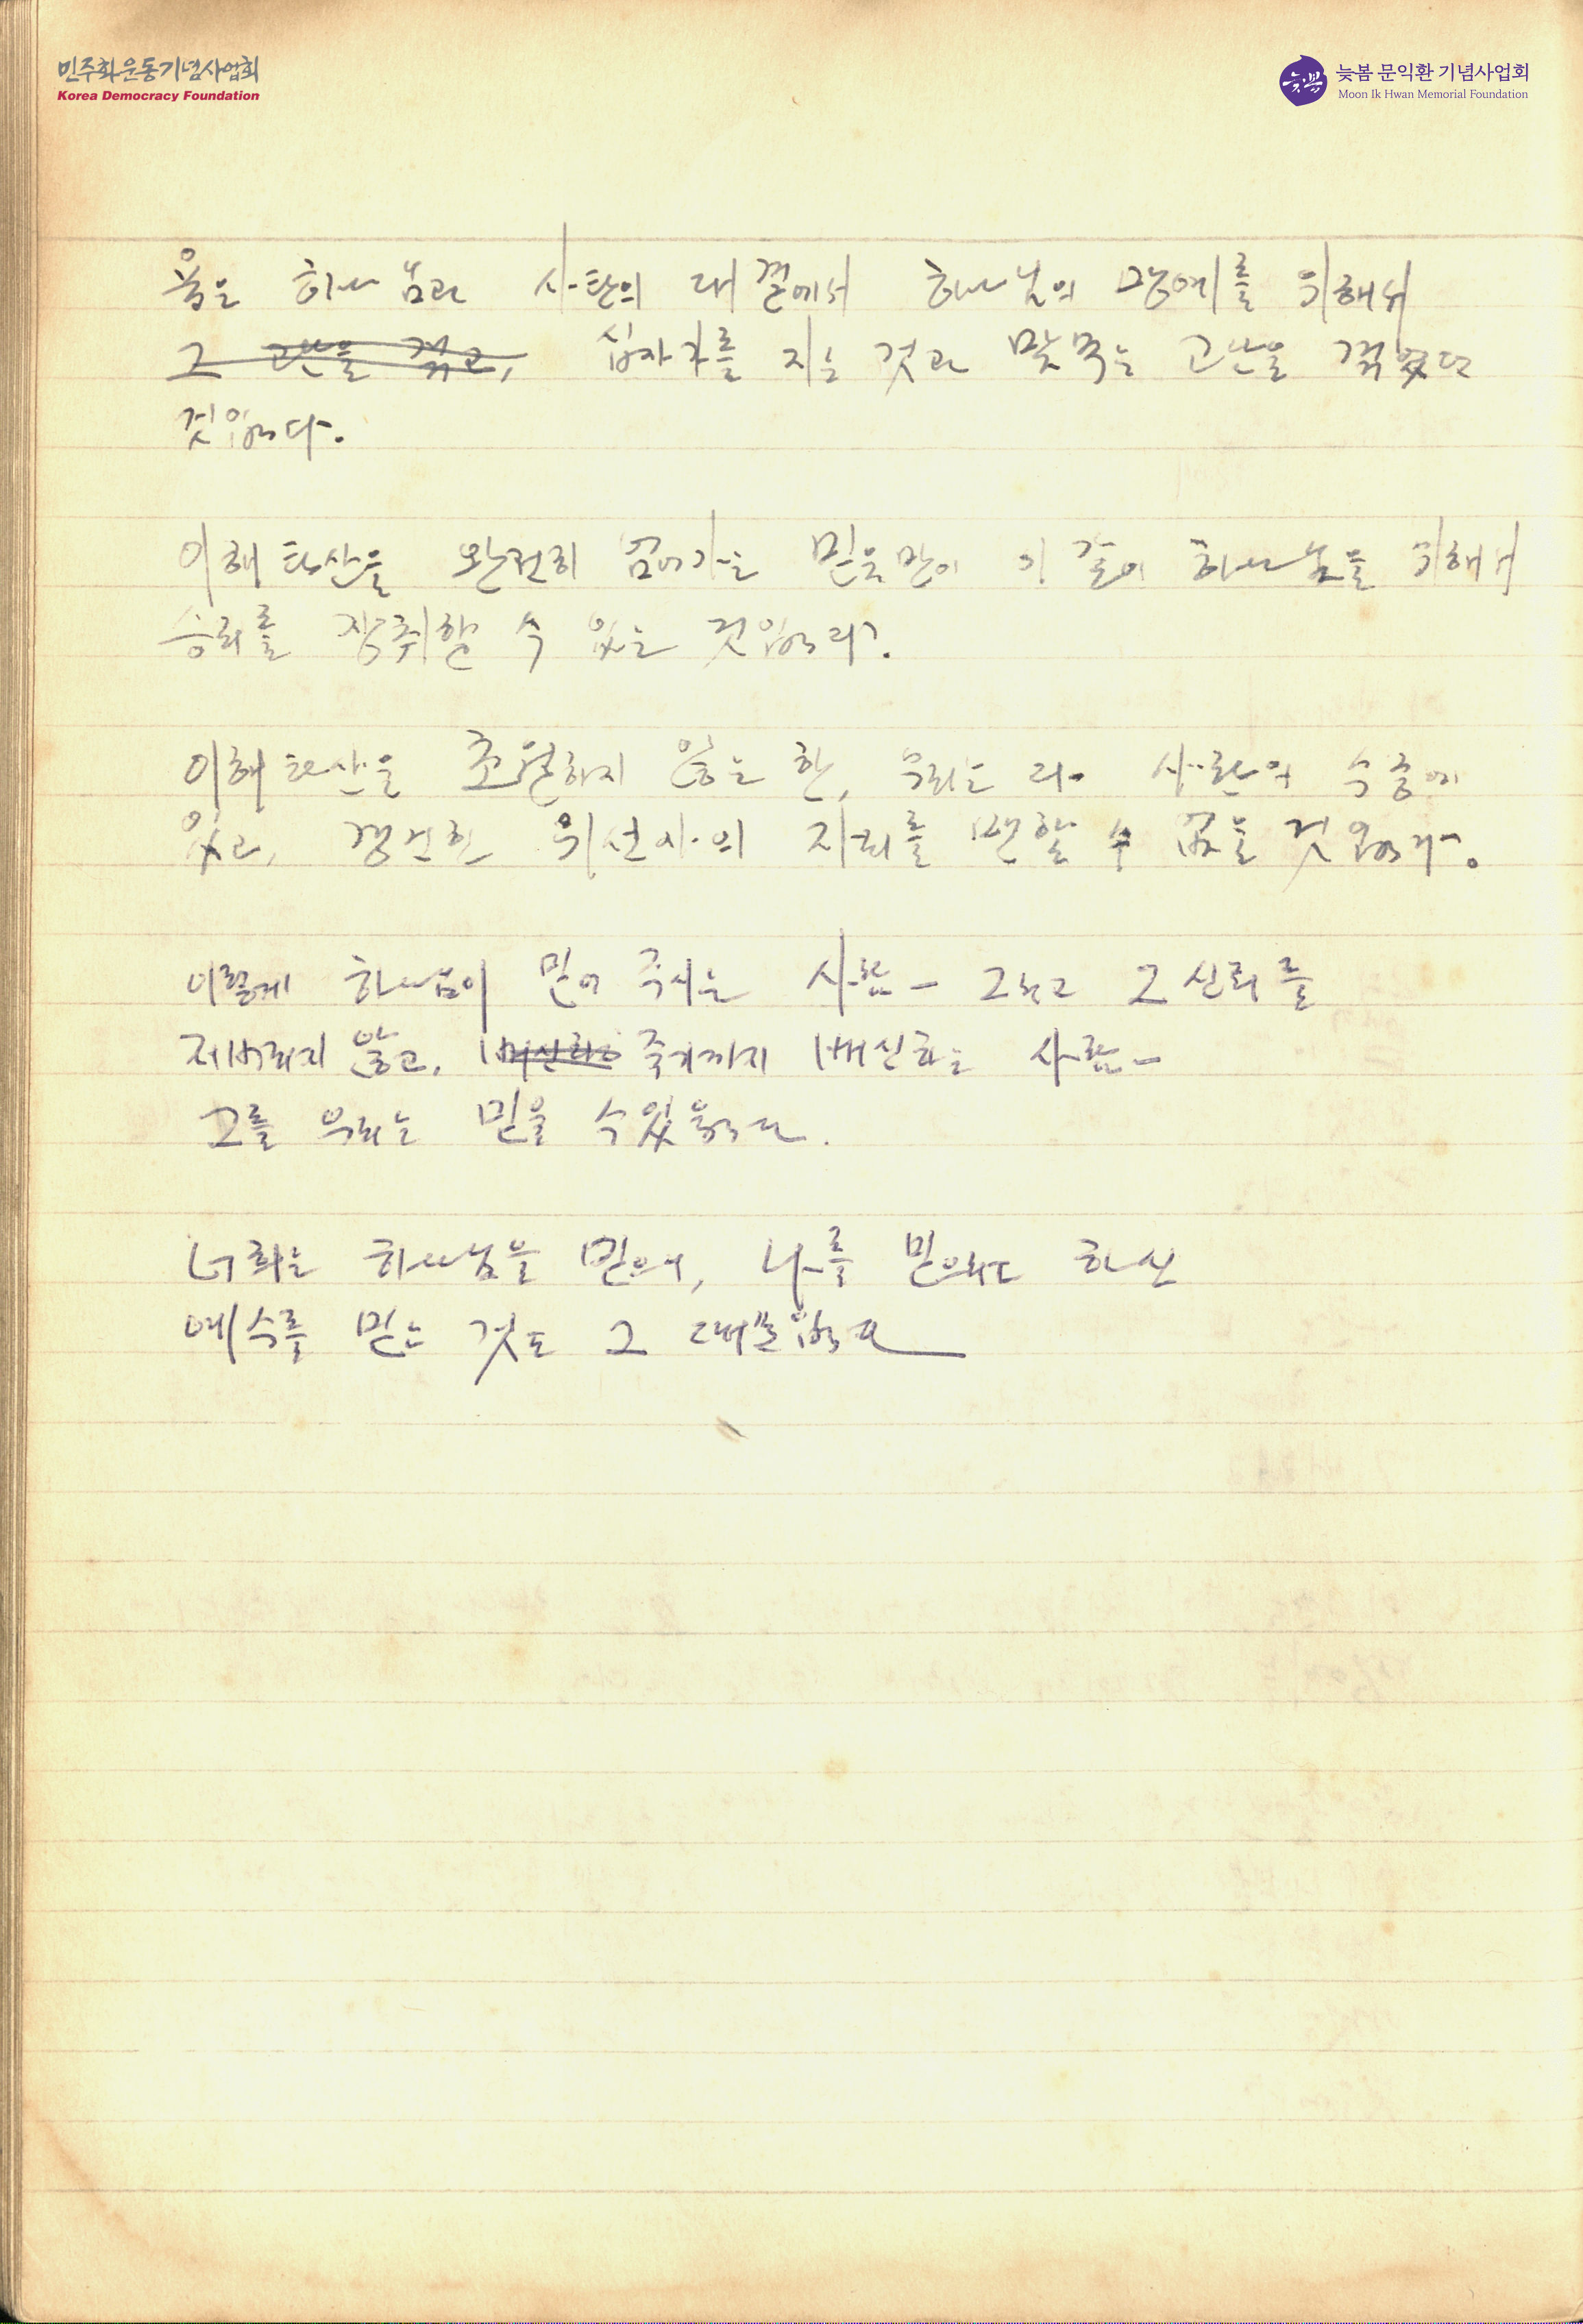 민주화운동기념사업회
Korea Democracy Foundation
늦봄
늦봄 문익환 기념사업회
Moon Ik Hwan Memorial Foundation
욥은 하나님과 사탄의 대결에서 하나님의 명예를 위해서
그 고난을 겪고, 십자가를 지는 것과 맞먹는 고난을 겪었던
것입니다.
이해타산을 완전히 넘어가는 믿음만이 이같이 하나님을 위해서
승리를 쟁취할 수 있는 것입니다.
이해타산을 초월하지 않는 한, 우리는 다 사탄의 수중에
있고, 경건한 위선자의 자리를 면할 수 없을 것입니다.
이렇게 하나님이 믿어 주시는 사람 — 그리고 그 신뢰를
저버리지 않고, 죽기까지 사람 —
그를 우리는 믿을 수 있습니다.
너희는 하나님을 믿으니, 나를 믿으라고 하신
예수를 믿는 것도 그 때문입니다